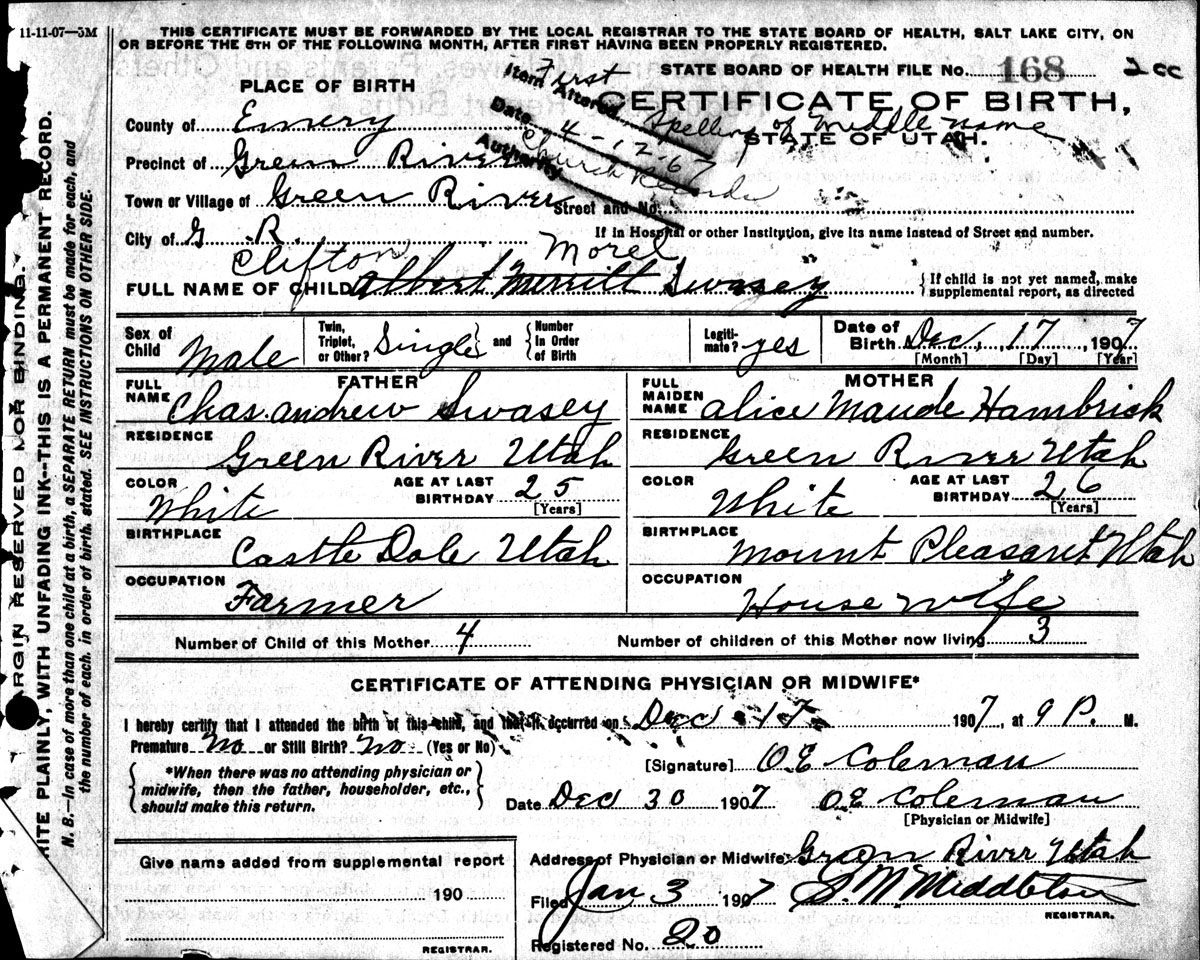 11-11-07—5M
THIS CERTIFICATE MUST BE FORWARDED BY THE LOCAL REGISTRAR TO THE STATE BOARD OF HEALTH, SALT LAKE CITY, ON
OR BEFORE THE 5TH OF THE FOLLOWING MONTH, AFTER FIRST HAVING BEEN PROPERLY REGISTERED.
STATE BOARD OF HEALTH FILE No. 168 2cc
PLACE OF BIRTH
CERTIFICATE OF BIRTH,
STATE OF UTAH.
Item Altered First Spelling of Middle name
Date 4-12-67
Authority Church Records
County of Emery
Precinct of Green River
Town or Village of Green River Street and No.
City of G R. If in Hospital or other Institution, give its name instead of Street and number.
Clifton Morel
FULL NAME OF CHILD Albert Merritt Swasey {If child is not yet named, make
supplemental report, as directed
Sex of Child Male Twin, Triplet, or Other? Single and Number In Order of Birth Legitimate? yes Date of Birth Dec. 17, 1907
[Month] [Day] [Year]
FATHER MOTHER
FULL NAME Chas. andrew Swasey FULL MAIDEN NAME alice Maude Hambrick
RESIDENCE Green River Utah RESIDENCE Green River Utah
COLOR White AGE AT LAST BIRTHDAY 25 [Years] COLOR White AGE AT LAST BIRTHDAY 26 [Years]
BIRTHPLACE Castle Dale Utah BIRTHPLACE Mount Pleasant Utah
OCCUPATION Farmer OCCUPATION House wife
Number of Child of this Mother 4 Number of children of this Mother now living 3
CERTIFICATE OF ATTENDING PHYSICIAN OR MIDWIFE*
I hereby certify that I attended the birth of this child, and that it occurred on Dec 17, 1907, at 9 P. M.
Premature No or Still Birth? No (Yes or No)
{*When there was no attending physician or
midwife, then the father, householder, etc.,
should make this return.}
[Signature] O.E. Coleman
Date Dec 30 1907 O.E. Coleman
[Physician or Midwife]
Give name added from supplemental report
190
REGISTRAR.
Address of Physician or Midwife Green River Utah
Filed Jan 3 1907 S. N. Middleton
REGISTRAR.
Registered No. 20
ARGIN RESERVED FOR BINDING.
ITE PLAINLY, WITH UNFADING INK--THIS IS A PERMANENT RECORD.
N. B.—In case of more than one child at a birth, a SEPARATE RETURN must be made for each, and
the number of each, in order of birth, stated. SEE INSTRUCTIONS ON OTHER SIDE.